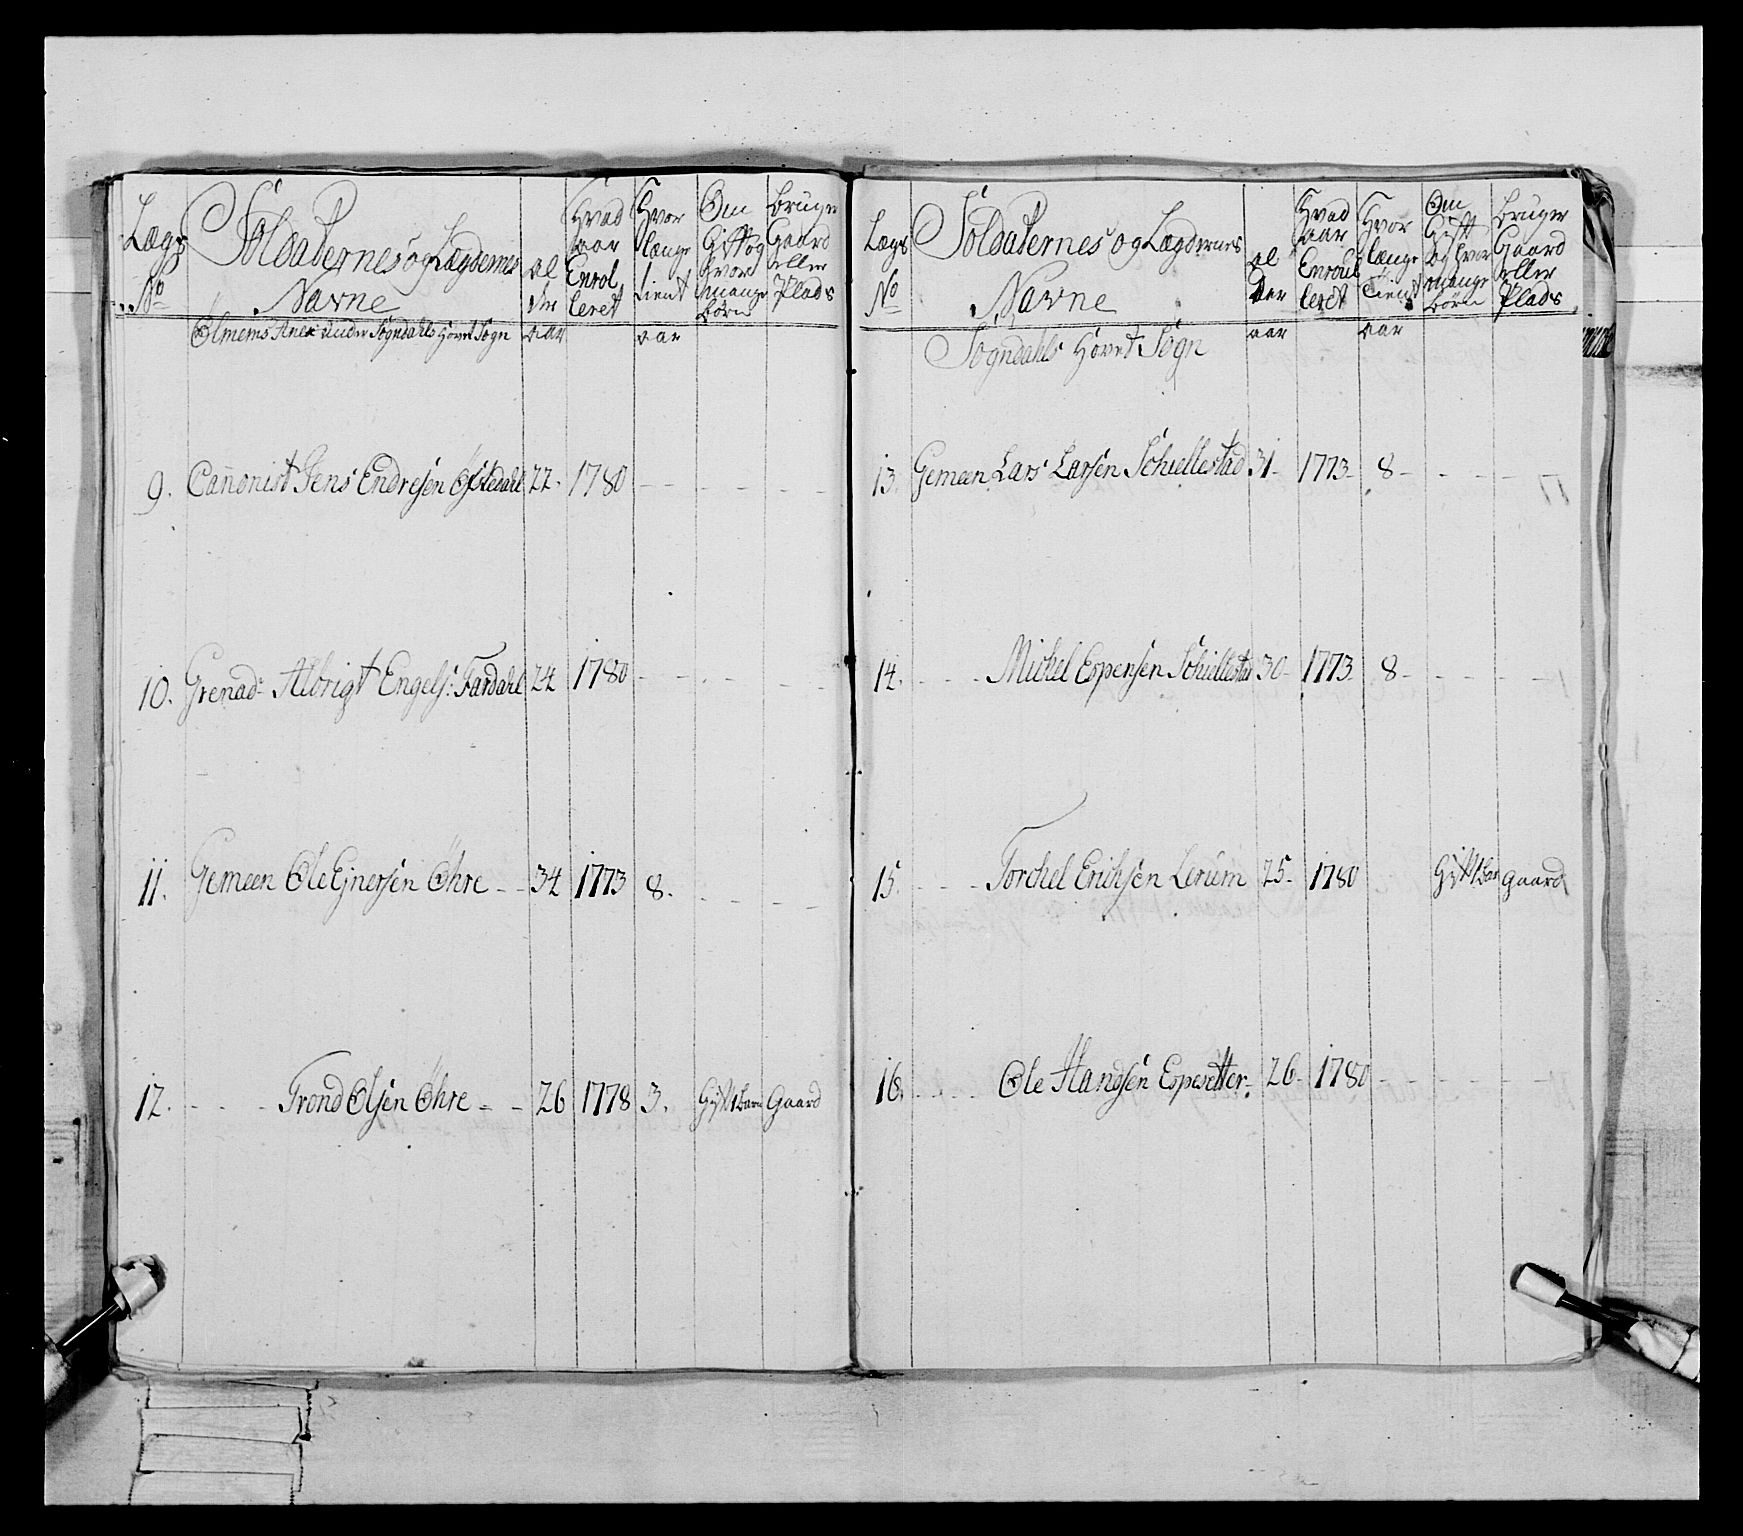 Lægs
No
Soldaternes og Lægdernes
Navne
al
der
Hvad
aar
Enrol
leret
Hvor
længe
tient
Om
Gift og
hvor
mange
børn
Bruger
Gaard
eller
Plads
Olmems Anex under Sogndahls Hovet Sogn aar aar
9. Cañonist Jens Endresen Ølstedahl 22- 1780 - - - - - -
10. Grenad: Albrigt Engels: Fardahl 24 1780 - - - - - -
11. Gemeen Ole Ejnersen Øhre - - 34 1773 8. - - - -
12. - - - - Trond Olsen Øhre - - 26 1778 3. Gift 1 barn Gaard
Lægs
No
Soldaternes og Lægdernes
Navne
al
der
Hvad
aar
Enroul
leret
Hvor
længe
Tient
Om
Gift
og hvor
mange
børn
Bruger
Gaard
eller
Plads
Sogndahls Hovet Sogn aar aar
13. Gemeen Lars Larsen Schiellestad 31- 1773- 8- - - -
14. - - - - Michel Espensen Schiellestad 30- 1773 8- - - - -
15. - - - - Torchel Erichsen Lerum 25- 1780 Gift 1 Barn Gaard
16. - - - - Ole Hansen Espesetter- 26- 1780 - - - - -